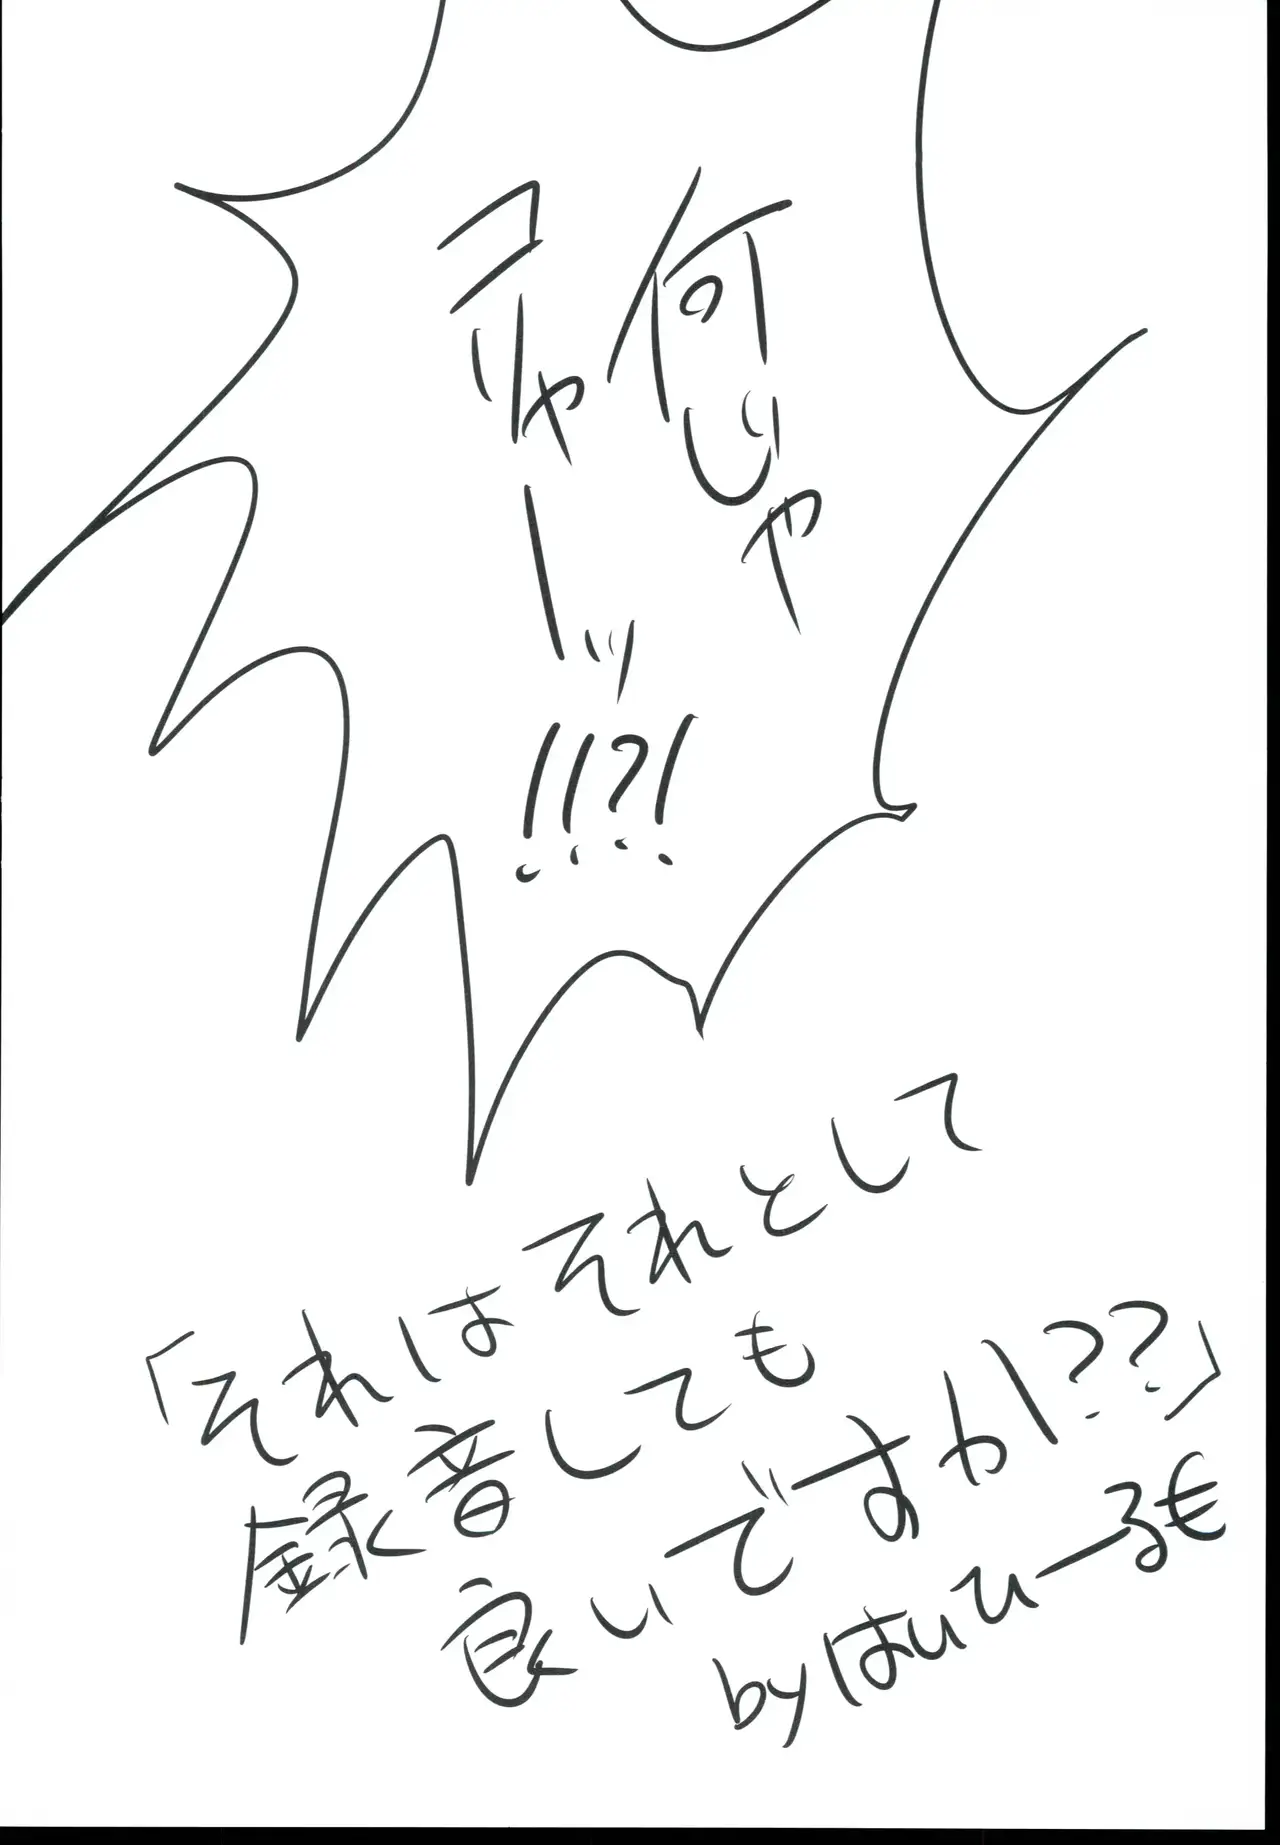 何じゃ
コリャーッ
!!?!
「それはそれとして
録音しても
良いですか!??」
byはいひーる€